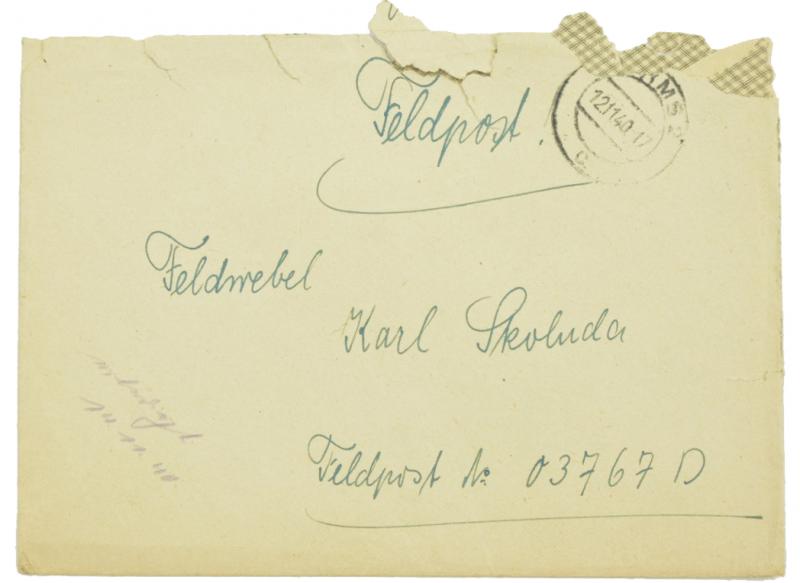 Feldpost.
12.11.40.17
Feldwebel
Karl Skoluda
Feldpost № 03767 D